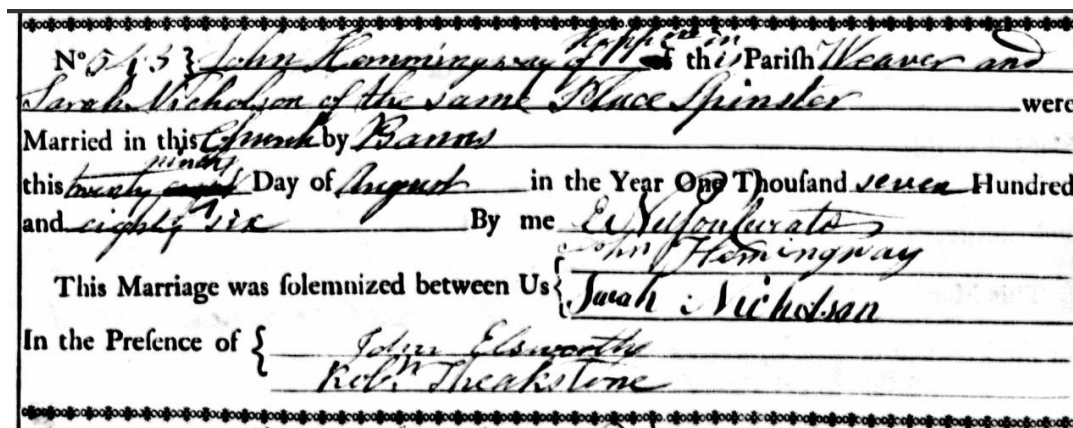 No 543 } John Hemmingway of Hopperin this Pariſh Weaver and
Sarah Nicholson of the same Place Spinster were
Married in this Church by Banns
this twenty ninth Day of August in the Year One Thouſand seven Hundred
and eighty six By me E. Nelson Curate
This Marriage was ſolemnized between Us { John Hemingway
Sarah Nicholson
In the Preſence of { John Elsworthy
Robn Theakstone